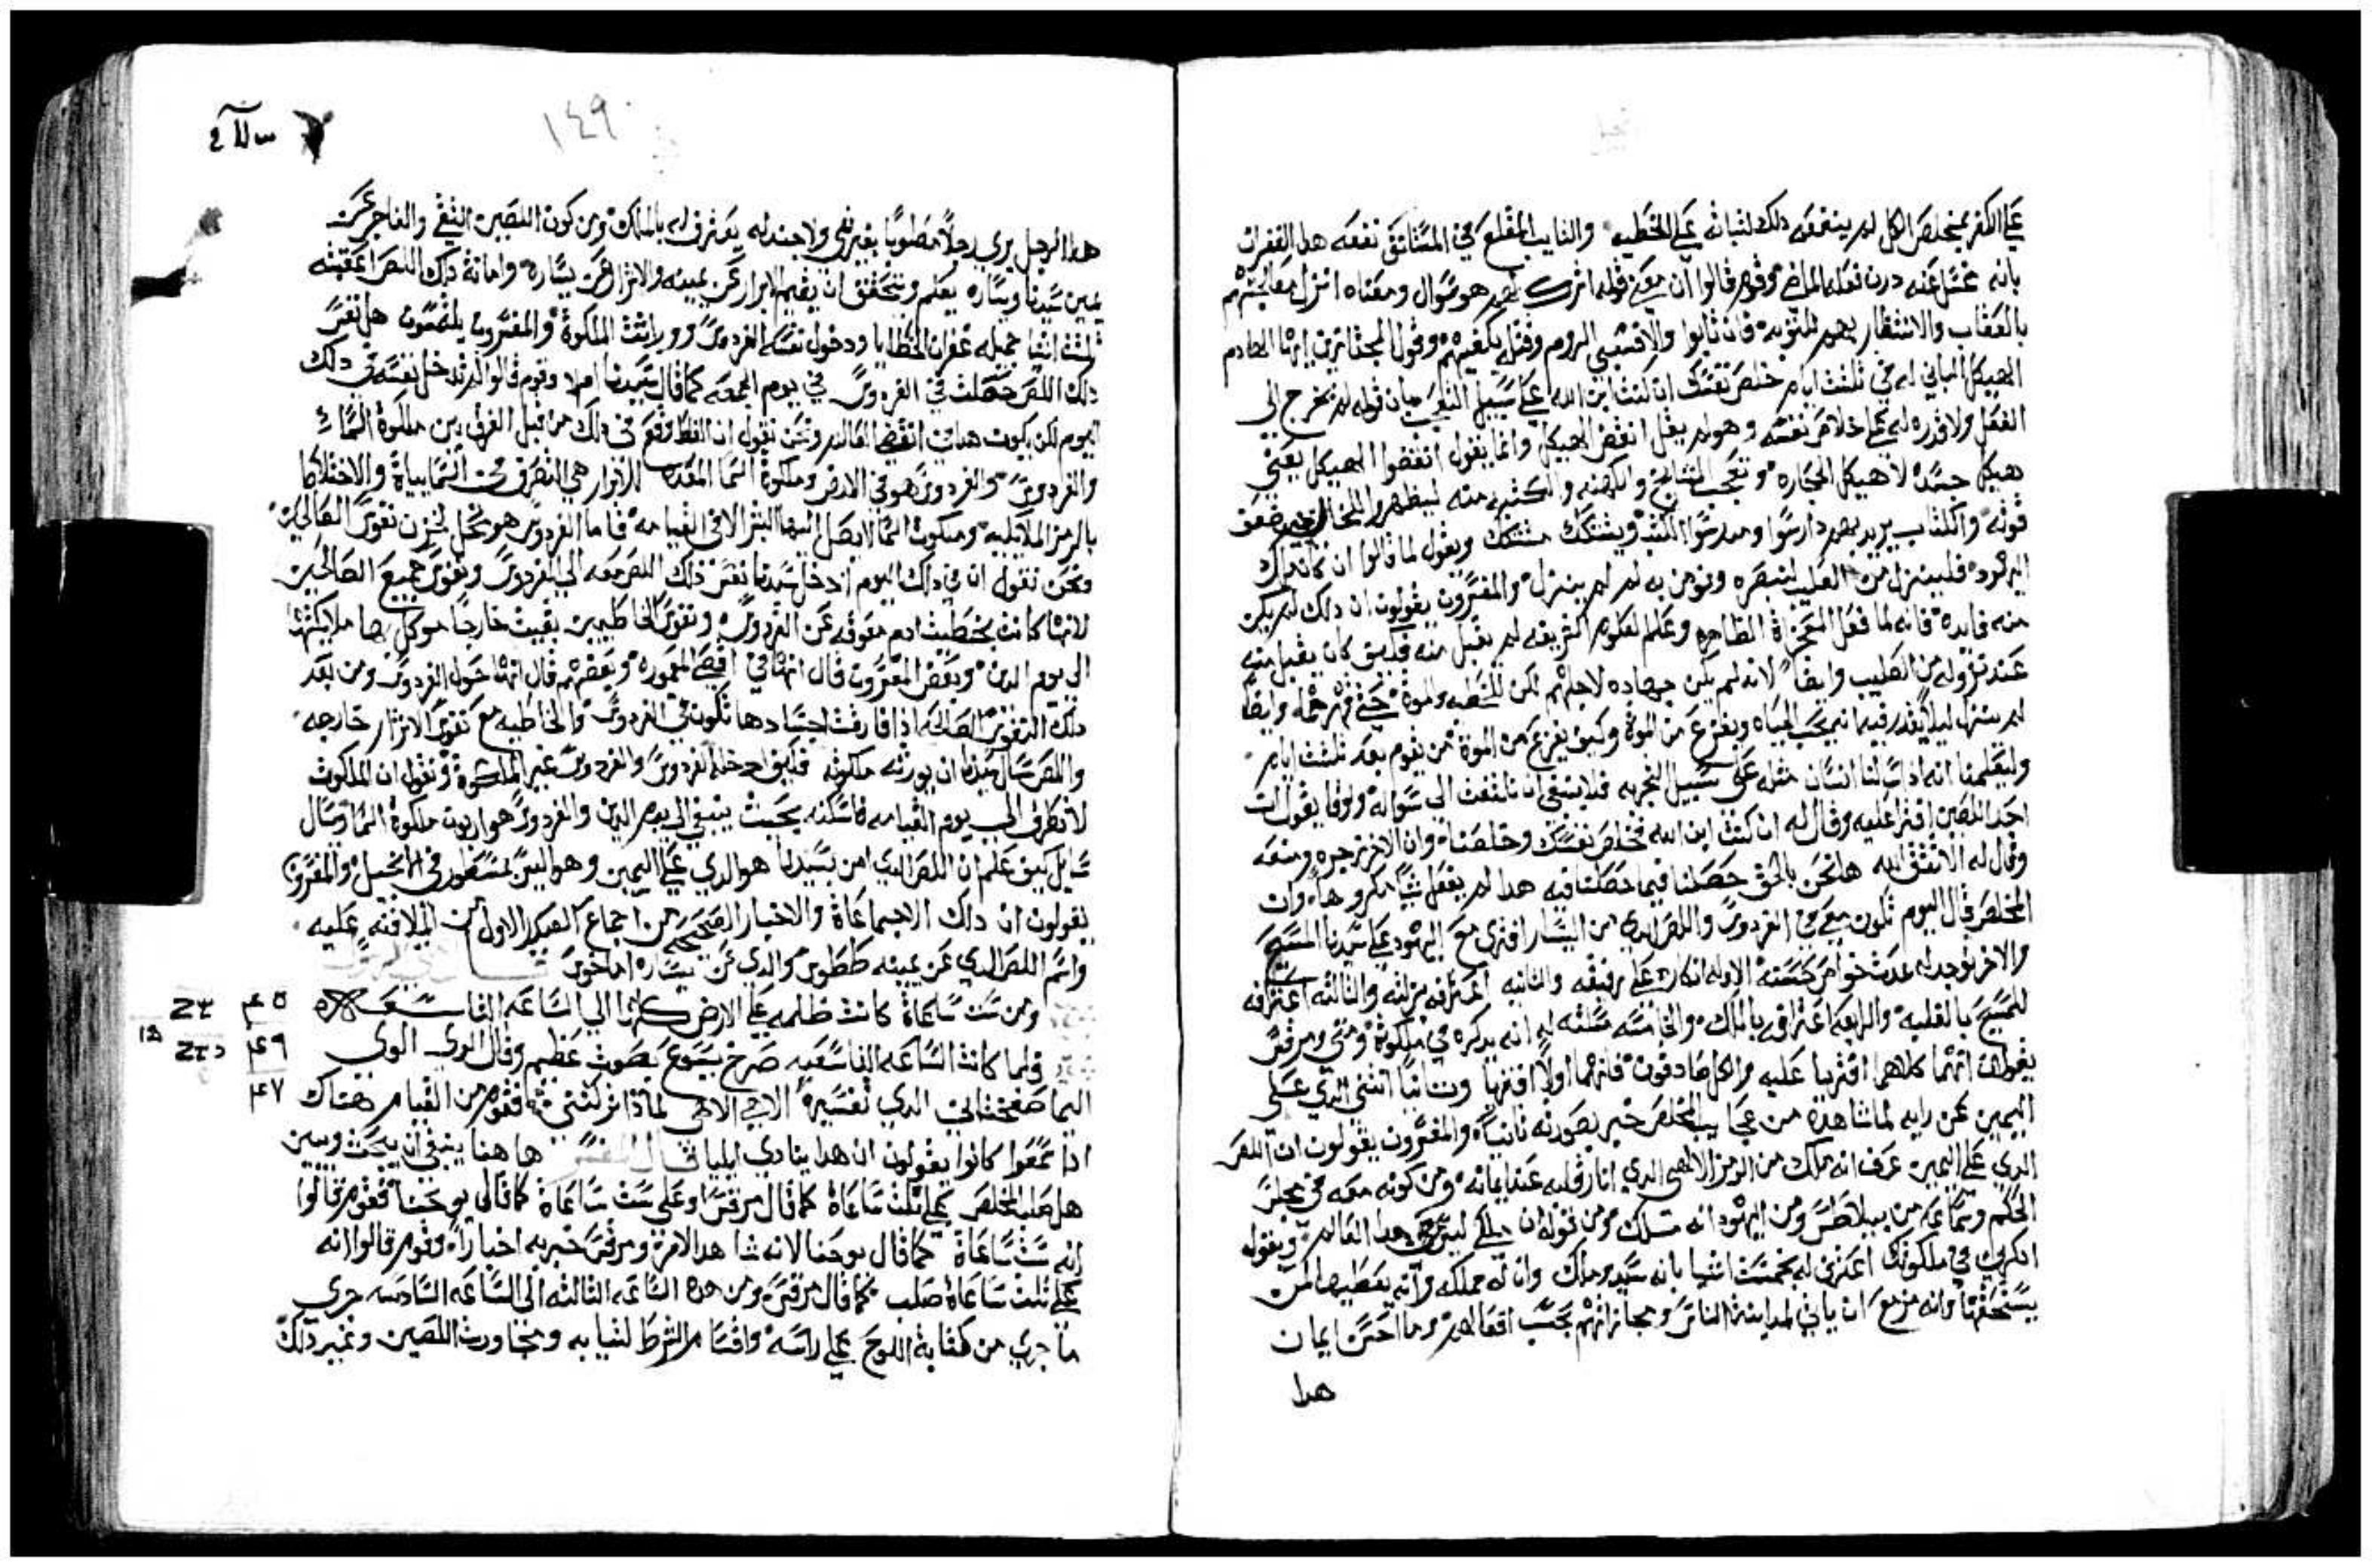 على الكفر بمخلص الكل لم ينفعه دلك لثباته على الخطيه والتايب المقلع في المستانف نفعه هدا الغفران
بانه غسل عنه درن فعله الماضي وقوم قالوا ان معنى قوله اترك لهم هو سوال ومعناه اترك معالجتهم
بالعقاب والانتظار بهم للتوبه فان تابوا والا فتسبي الروم وقتل يكفيهم وقول المجتازين ايها الهادم
الهيكل الباني له في تلتت ايام خلص نفسك ان كنت ابن الله على سبيل التعجب من قوله لم يخرج الى
الفعل ولا قدره له على خلاص نفسه وهو لم يقل انقض الهيكل وانما يقول انقضوا الهيكل يعني
هيكل جسده لا هيكل الحجاره وتعجب المشايخ والكهنه والكتبه منه ليظهروا للمخالفين ضعف
قوته والكتاب يريد بهم دارسوا ومدرسوا الكتب ويشكك مشكك ويقول لما قالوا ان كان داك
اليهود فلينزل من الصليب لنبصره ونومن به لم لم ينزل والمفسرون يقولون ان دلك لم يكن
منه فايده فانه لما فعل المعجزاة الظاهره وعلم العلوم الشريفه لم يقبل منه فكيف كان يقبل منه
عند نزوله من الصليب وايضا لانه لم يكن جهاده لاجلهم لكن للخطيه والموة حتى قهرهما وايضا
لم ينزل ليلا يقدر فيه انه يحب الحياه ويفزع من الموة وكيف يفزع من الموة من يقوم بعد تلتت ايام
وليعلمنا انه اذا سالنا انسان مثله على سبيل التجربه فلا ينبغي ان نلتفت الى سواله ولوقا يقول ان
احد اللصين افترا عليه وقال له ان كنت ابن الله فخلص نفسك وخلصنا وان الاخر زجره ومنعه
وقال له الا تتقي الله ها نحن بالحق حصلنا فيما حصلنا فيه هدا لم يفعل شيا مكروها وان
المخلص قال اليوم تكون معي في الفردوس واللص الدي من اليسار افترى مع اليهود على سيدنا المسيح
والاخر توجد له عدت خواص حسنه الاوله انكاره على رفيقه والتانيه اعترافه بزلته والتالته اعترافه
للمسيح بالغلبه والرابعه اعترافه بالملك والخامسه مسلته له انه يدكره في ملكوته ومتى ومرقس
يقولان انهما كلاهما افتريا عليه والكل صادقون فانهما اولا افتريا وتانيا انتنى الدي على
اليمين عن رايه لما شاهده من عجايب المخلص خبر بصورته تانيا والمفسرون يقولون ان اللص
الدي على اليمين عرف انه ملك من الرمز الالاهي الدي انار قلبه عند ايمانه ومن كونه معه في مجلس
الحكم وسماعه من بيلاطس ومن اليهود انه ملك ومن قوله ان ملكي ليس من هدا العالم وبقوله
ادكرني في ملكوتك اعترف له بخمست اشيا بانه سيد وملك وان له مملكه وانه يعطيها لمن
يستحقها وانه مزمع ان ياتي لمداينة الناس ومجازاتهم بحسب افعالهم وما احسن ايمان
هدا
١٤٩
هدا الرجل يرى رجلا مصلوبا بغير شي ولا جند له يعترف له بالملك ومن كون اللصين التقي والفاجر عن
يمين سيدنا ويساره يعلم ويتحقق ان يقيم الابرار عن يمينه والاشرار عن يساره وامانة دلك اللص اعقبته
تلتت اشيا جميله غفران الخطايا ودخول نفسه الفردوس وورايتت الملكوة والمفسرون يلتمسون هل نفس
دلك اللص حصلت في الفردوس في يوم الجمعه كما قال سيدنا ام لا وقوم قالوا لم تدخل نفسه في دلك
اليوم لكن يكون هدا في انقضا العالم ونحن نقول ان الغلط وقع في دلك من قبل الفرق بين ملكوة السما
والفردوس والفردوس هو في الارض وملكوة السما المعده للابرار هي التصرف في السماييات والاختلاط
بالزمر الملايكيه وملكوت السما لا يصل اليها البشر الا في القيامه فاما الفردوس هو محل لخزن نفوس الصالحين
ونحن نقول ان في دلك اليوم ادخل سيدنا نفس دلك اللص معه الى الفردوس ونفوس جميع الصالحين
لانها كانت بخطيت ادم معوقه عن الفردوس ونفوس الخاطيين بقيت خارجا موكل بها ملايكتها
الى يوم الدين وبعض المفسرون قال انها في اقصى المعموره وبعضهم قال انها حول الفردوس ومن بعد
دلك النفوس الصالحه اذا فارقت اجسادها تكون في الفردوس والخاطيه مع نفوس الاشرار خارجه
واللص سال سيدنا ان يورته ملكوته فكيف ادخله الفردوس والفردوس غير الملكوة ونقول ان الملكوت
لا تطرق الى يوم القيامه فاسكنه بحيت ينبغي الى يوم الدين والفردوس هو اربون ملكوة السما وسال
سايل كيف علم ان اللص الدي امن بسيدنا هو الدي على اليمين وهو ليس مسطور في الانجيل والمفسرون
يقولون ان دلك الاجتماعاة والاخبار الصحيحه من اجماع العسكر الاول من التلافته عليه
واسم اللص الدي عن يمينه ططوس والدي عن يساره اماخوس
ومن ست ساعاة كانت ظلمه على الارض كلها الى الساعه التاسعه
ولما كانت الساعه التاسعه صرخ يسوع بصوت عظيم وقال الوي الوي
اليما صفختاني الدي تفسيره الاهي الاهي لماذا تركتني فقوم من القيام هناك
اذ سمعوا كانوا يقولون ان هدا ينادي ايليا قال المفسر ها هنا ينبغي ان يبحت ويبين
هل صلب المخلص على تلت ساعاة كما قال مرقس او على ست ساعاة كما قال يوحنا فقوم قالوا
انه ست ساعاة كما قال يوحنا لانه شاهد الامر ومرقس خبر به اخبارا وقوم قالوا انه
على تلت ساعاة صلب كما قال مرقس ومن هده الساعه التالته الى الساعه السادسه جرى
ما جرى من كتابة اللوح على راسه واقتسام الشرط لتيابه ومحاورت اللصين وغير دلك